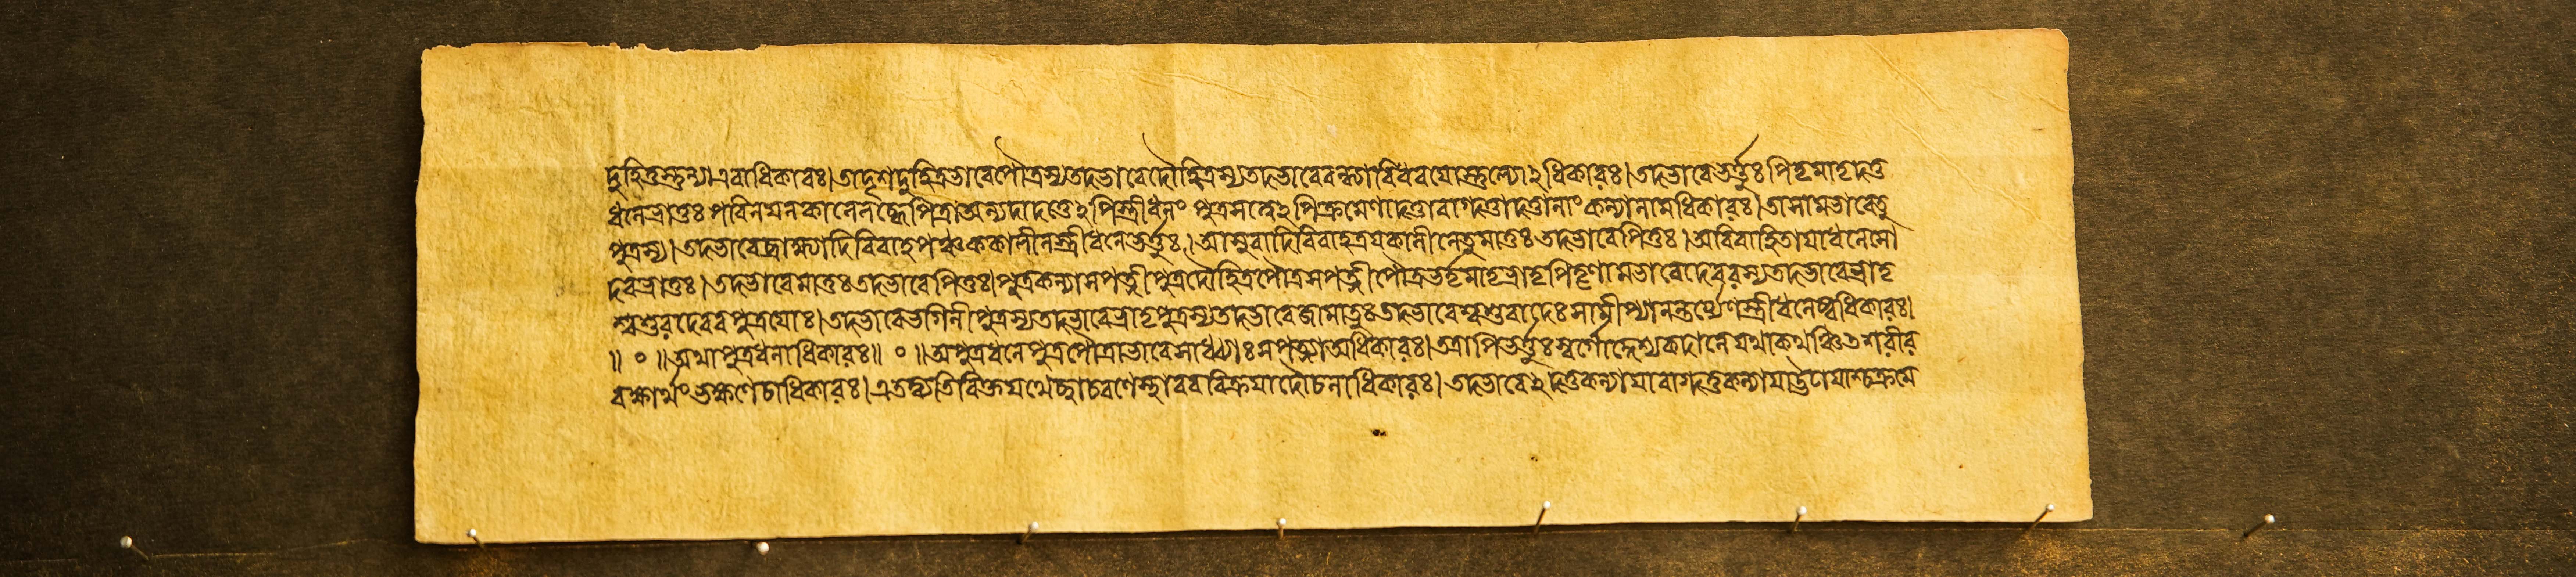 দুহিতুস্তুল্য এবাধিকারঃ।তাদৃশদুহিত্রভাবেপৌত্রস্যতদভাবেদৌহিত্রস্যতদভাবেবন্ধ্যাবিধবযোস্তুল্যোঽধিকারঃ।তদভাবেভর্ত্তুঃপিতৃমাতৃদত্ত
ধনেভ্রাতুঃপরিনয়নকালেনলব্ধেপিত্রাঅন্যদাদত্তেঽপিস্ত্রীধনংপুত্রসত্ত্বেঽপিক্রমেণাদত্তাবাগদত্তাদত্তানাংকন্যানামধিকারঃ।তাসামভাবেতু
পুত্রস্য।তদভাবেব্রাহ্ম্যাদিবিবাহপঞ্চককালীনস্ত্রীধনেভর্ত্তুঃ।আসুরাদিবিবাহত্রয়কালীনেতুমাতুঃতদভাবেপিতুঃ।অবিবাহিতাযাধনেসো
দরভ্রাতুঃ।তদভাবেমাতুঃতদভাবেপিতুঃ।পুত্রকন্যাসপত্নীপুত্রদৌহিত্রপৌত্রসপত্নীপৌত্রভর্তৃমাতৃভ্রাতৃপিতৃণামভাবেদেবরস্যতদভাবেভ্রাতৃ
শ্বশুরদেবরপুত্রযোঃ।তদভাবেভগিনীপুত্রস্যতদভাবেভ্রাতৃপুত্রস্যতদভাবেজামাতুঃতদভাবেশ্বশুরাদেঃসামীপ্যানন্তর্য্যেণস্ত্রীধনেষ্বধিকারঃ।
॥ ০ ॥অথাপুত্রধনাধিকারঃ॥ ০ ॥অপুত্রধনেপুত্রপৌত্রাভাবেসাধ্ব্যাঃসপত্ন্যাঅধিকারঃ।তত্রাপিভর্ত্তুঃস্বর্গোদ্দেশ্যকদানেযথাকথঞ্চিতশরীর
রক্ষার্থংভক্ষণেচাধিকারঃ।এতদ্ব্যতিরিক্তযথেচ্ছাচরণেস্থাবরবিক্রযাদৌচনাধিকারঃ।তদভাবেঽদত্তকন্যাযাবাগদত্তকন্যাযাঊঢাযাশ্চক্রমে